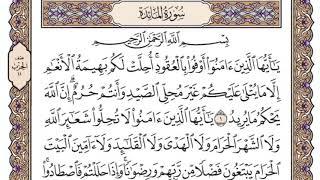 سُورَةُ المَائِدَة
بِسْمِ ٱللَّهِ ٱلرَّحْمَٰنِ ٱلرَّحِيمِ
يَٰٓأَيُّهَا ٱلَّذِينَ ءَامَنُوٓا۟ أَوْفُوا۟ بِٱلْعُقُودِ ۚ أُحِلَّتْ لَكُم بَهِيمَةُ ٱلْأَنْعَٰمِ
إِلَّا مَا يُتْلَىٰ عَلَيْكُمْ غَيْرَ مُحِلِّى ٱلصَّيْدِ وَأَنتُمْ حُرُمٌ ۗ إِنَّ ٱللَّهَ
يَحْكُمُ مَا يُرِيدُ ١ يَٰٓأَيُّهَا ٱلَّذِينَ ءَامَنُوا۟ لَا تُحِلُّوا۟ شَعَٰٓئِرَ ٱللَّهِ
وَلَا ٱلشَّهْرَ ٱلْحَرَامَ وَلَا ٱلْهَدْىَ وَلَا ٱلْقَلَٰٓئِدَ وَلَآ ءَآمِّينَ ٱلْبَيْتَ
ٱلْحَرَامَ يَبْتَغُونَ فَضْلًا مِّن رَّبِّهِمْ وَرِضْوَٰنًا ۚ وَإِذَا حَلَلْتُمْ فَٱصْطَادُوا۟ ۚ